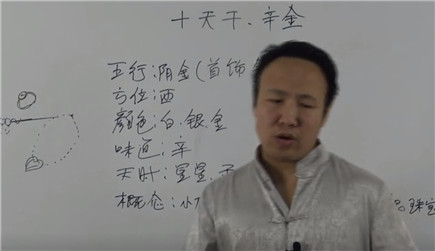 十天干.辛金
五行:阴金(首饰
方位:西
颜色:白.银.金
味道:辛
天时:星星.
概念:小
珠宝